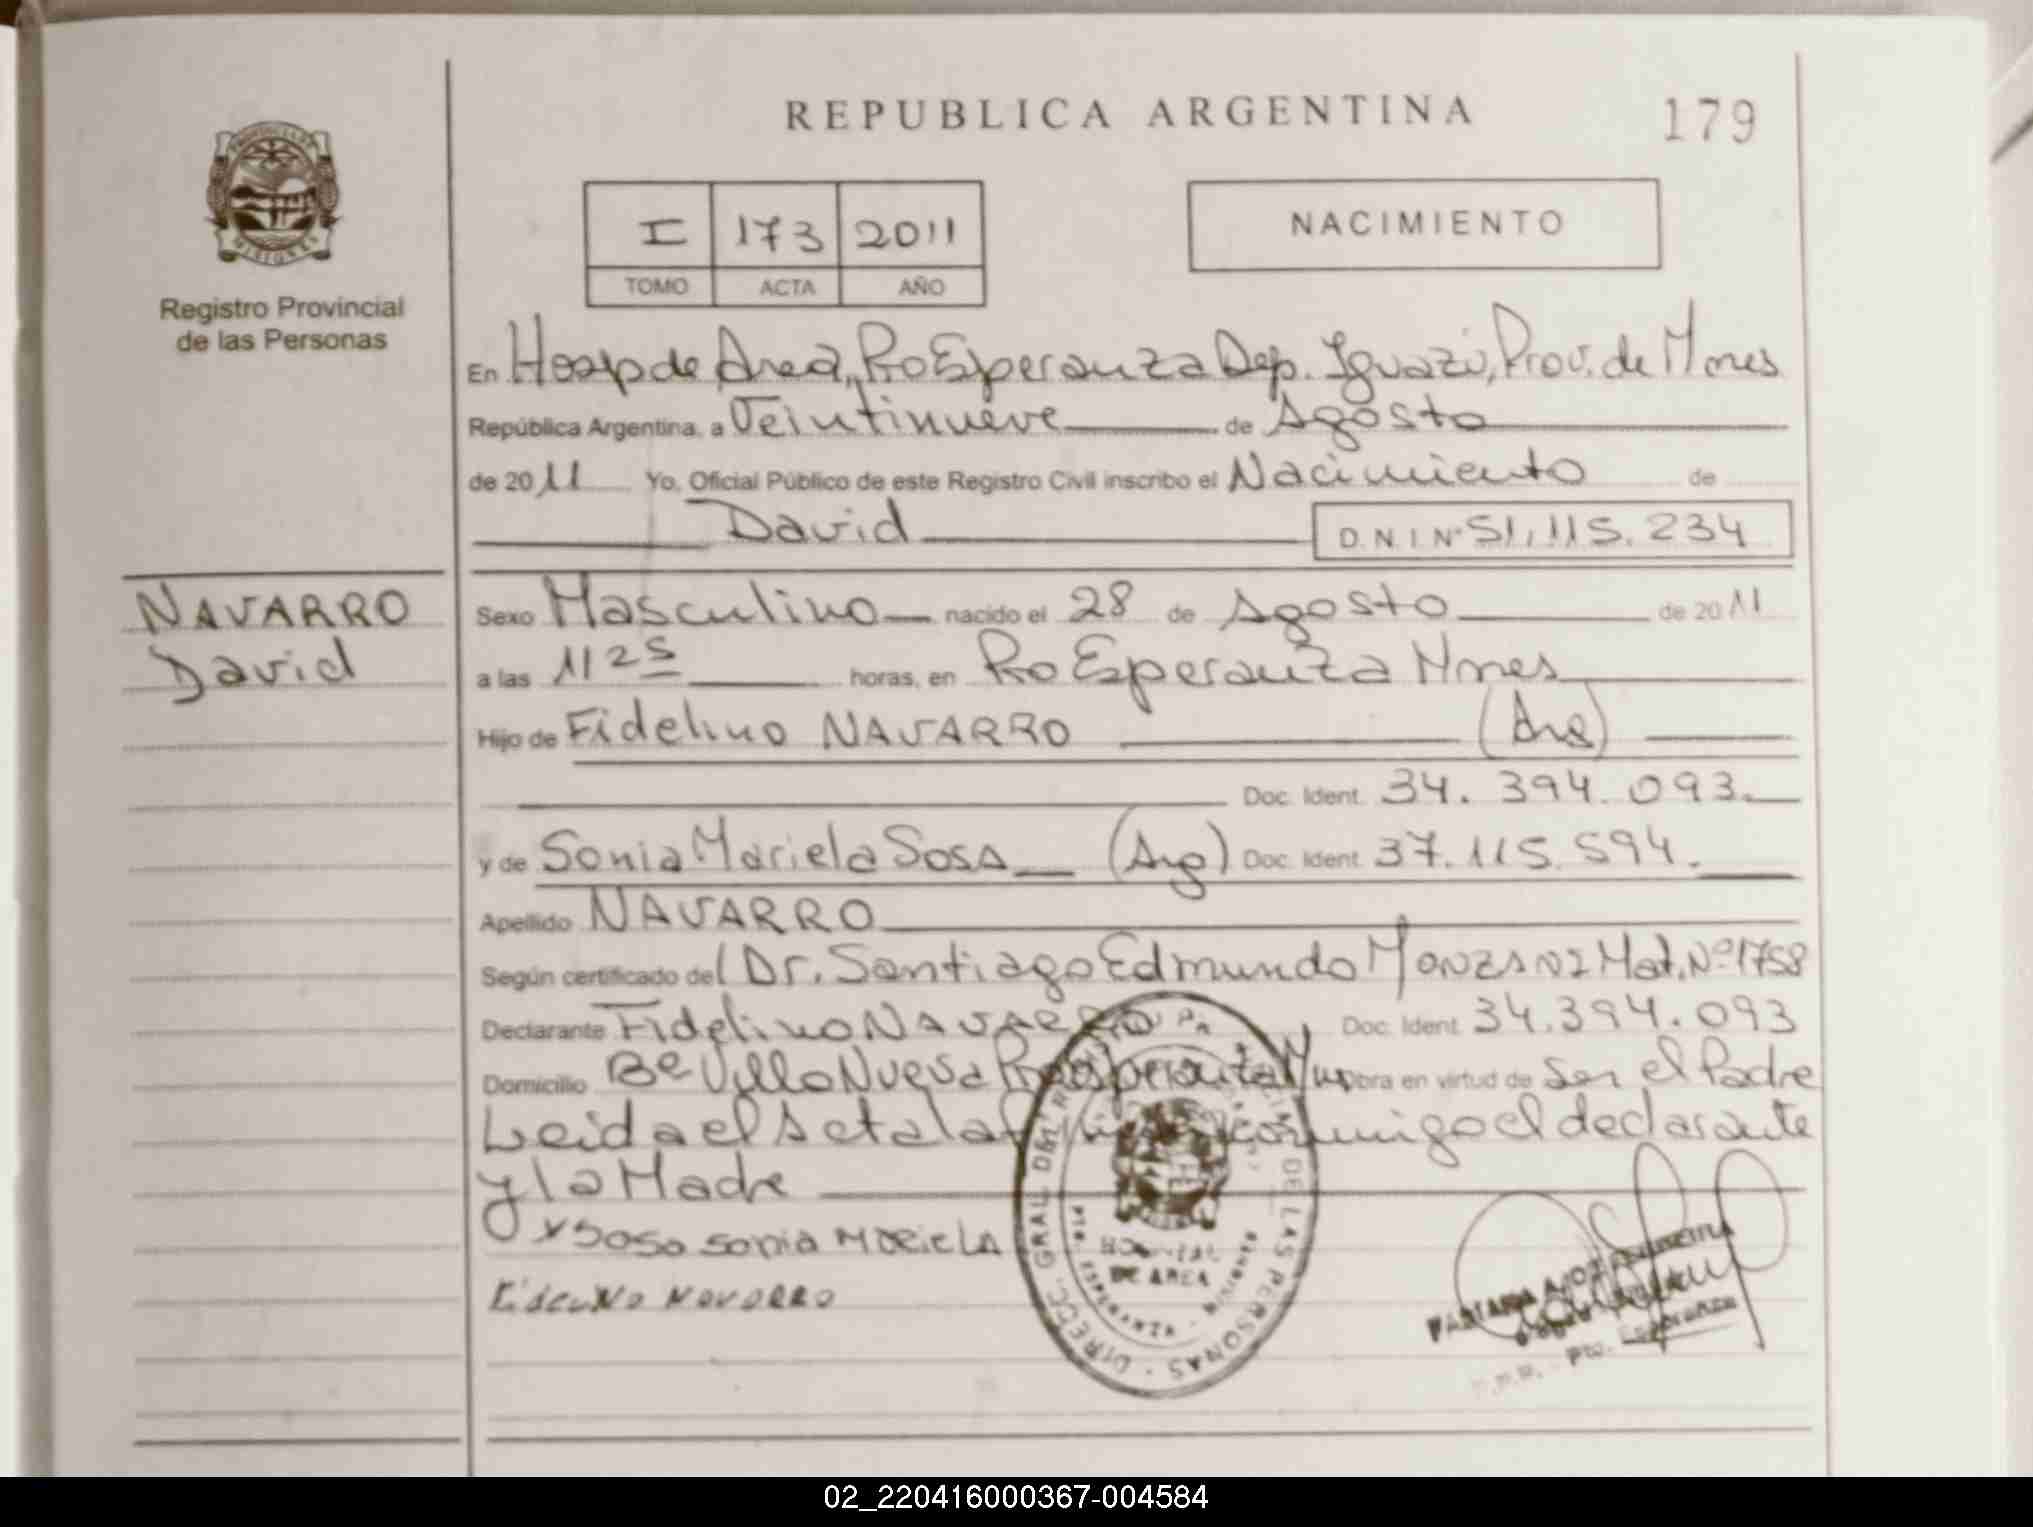 REPUBLICA ARGENTINA
179
PROVINCIA DE
MISIONES
Registro Provincial
de las Personas
I 173 2011
TOMO ACTA AÑO
NACIMIENTO
En Hosp de Area, Pto Esperanza Dep. Iguazú, Prov. de Mnes
República Argentina, a Veintinueve de Agosto
de 2011 Yo, Oficial Público de este Registro Civil inscribo el Nacimiento de
David D.N.I Nº 51.115.234
NAVARRO
David
Sexo Masculino nacido el 28 de Agosto de 2011
a las 11 25 horas, en Pto Esperanza Mnes
Hijo de Fidelino NAVARRO (Arg)
Doc. Ident. 34.394.093.
y de Sonia Mariela Sosa (Arg) Doc. Ident. 37.115.594.
Apellido NAVARRO
Según certificado del Dr. Santiago Edmundo Manzani Mat. Nº 1758
Declarante Fidelino NAVARRO Doc. Ident. 34.394.093
Domicilio Bº Villa Nueva Pto Esperanza Mnes Obra en virtud de Ser el Padre
Leida el Acta la conmigo el declarante
y la Madre
x Sosa Sonia Mariela
Fidelino Navarro
DIRECC. GRAL DEL REGISTRO DE LAS PERSONAS
HOSPITAL
DE AREA
PTO. ESPERANZA - MISIONES
Pto. Esperanza
02_220416000367-004584